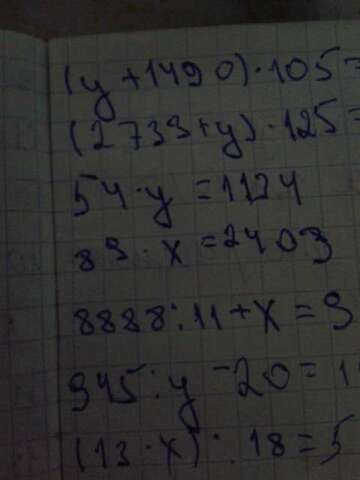 (y + 1490) · 105 =
(2733 + y) · 125 =
54 · y = 1124
89 · x = 2403
8888 : 11 + x = 9
945 : y - 20 = 1
(13 · x) : 18 = 5